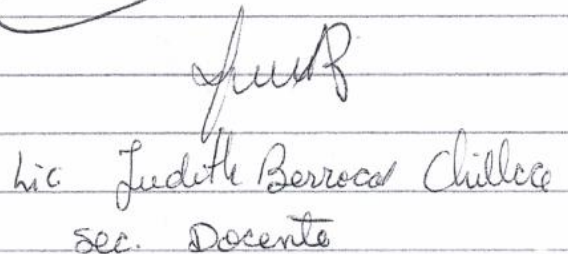 Lic Judith Berrocal Chillcce
Sec. Docente